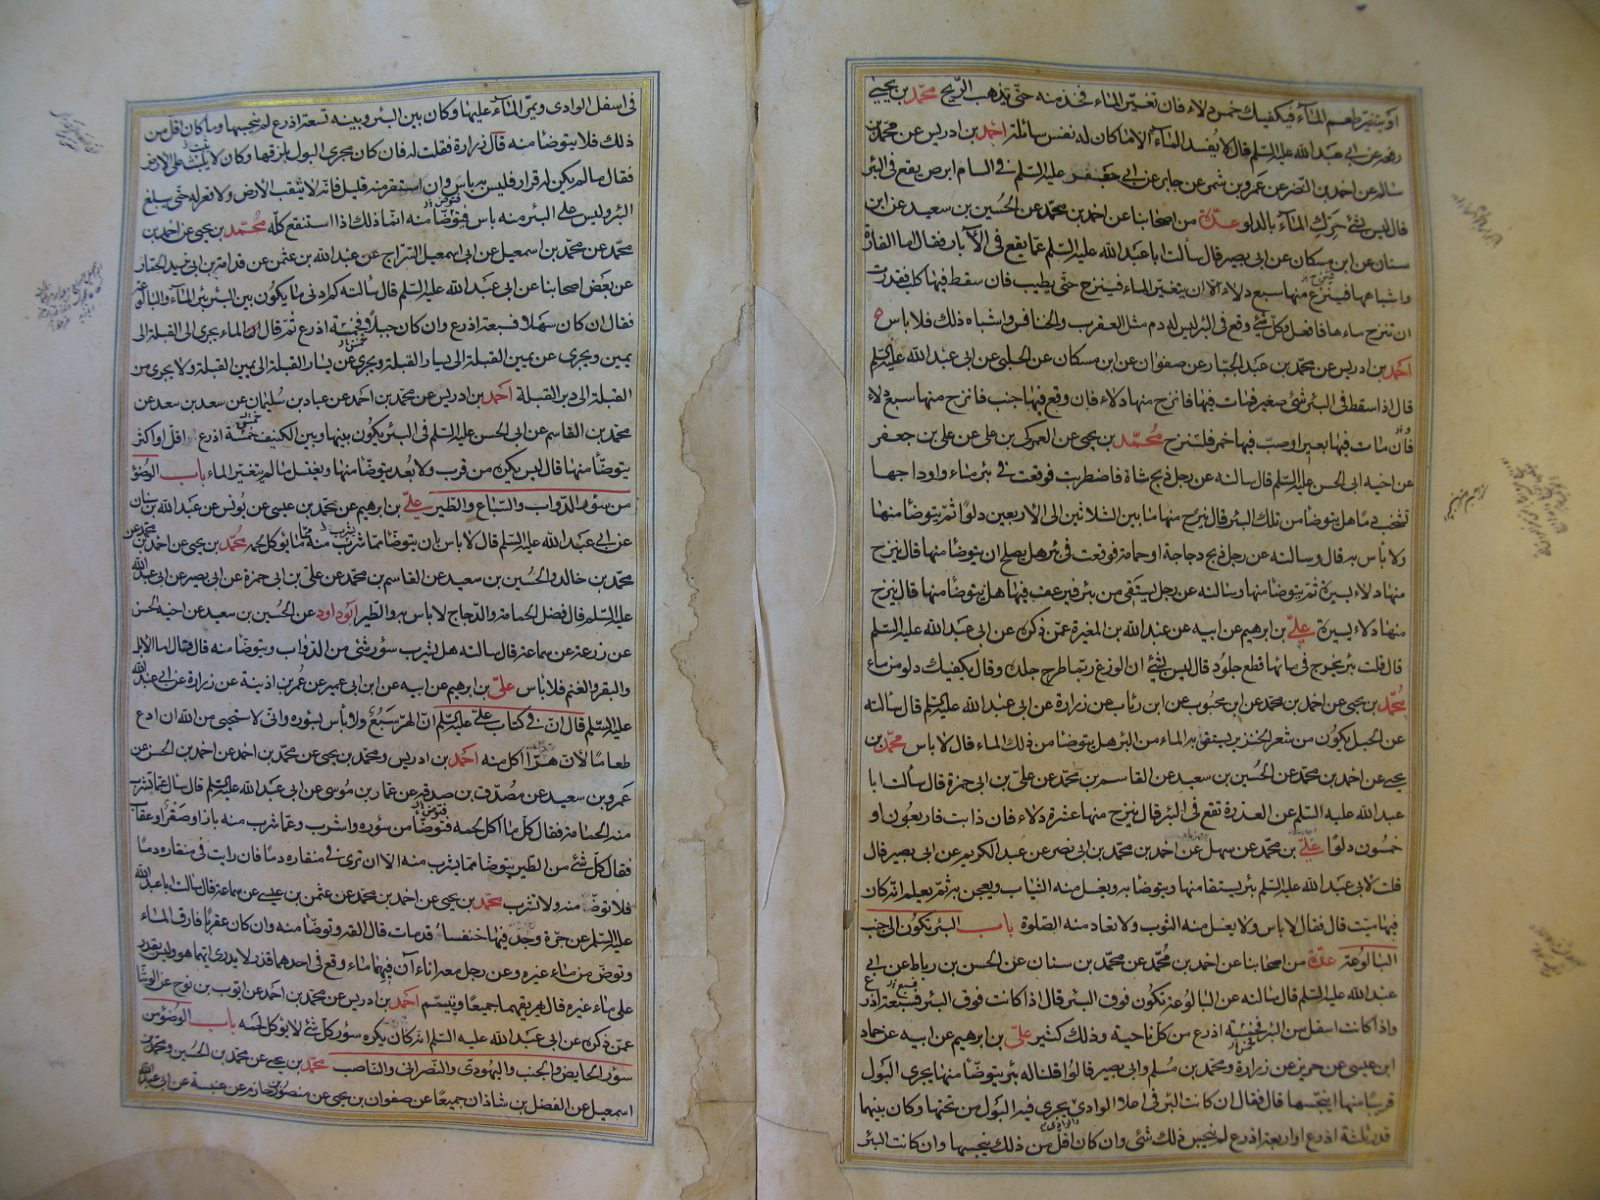 او يتغير طعم الماء فيكفيك خمس دلاء فان تغير الماء فخذ منه حتى يذهب الريح محمد بن يحيى
رفعه عن ابى عبد الله عليه السلم قال لا يفسد الماء الا ما كان له نفس سائلة احمد بن ادريس عن محمد بن
سالم عن احمد بن النضر عن عمرو بن شمر عن جابر عن ابى جعفر عليه السلم فى السام ابرص يقع فى البئر
قال ليس بشئ حرك الماء بالدلو عدة من اصحابنا عن احمد بن محمد عن الحسين بن سعيد عن ابن
سنان عن ابن مسكان عن ابى بصير قال سالت ابا عبد الله عليه السلم عما يقع فى الآبار فقال اما الفارة
واشباهها فينزح منها سبع دلاء الا ان يتغير الماء فينزح حتى يطيب فان سقط فيها كلب فقدرت
ان تنزح ماءها فافعل وكل شئ وقع فى البئر ليس له دم مثل العقرب والخنافس واشباه ذلك فلا باس
احمد بن ادريس عن محمد بن عبد الجبار عن صفوان عن ابن مسكان عن الحلبى عن ابى عبد الله عليه السلم
قال اذا سقط فى البئر شئ صغير فمات فيها فانزح منها دلاء فان وقع فيها جنب فانزح منها سبع دلاء
فان مات فيها بعير او صب فيها خمر فلتنزح محمد بن يحيى عن العمركى بن على عن على بن جعفر
عن اخيه ابى الحسن عليه السلم قال سالته عن رجل ذبح شاة فاضطربت فوقعت فى بئر ماء واوداجها
تشخب دما هل يتوضا من تلك البئر قال ينزح منها ما بين الثلاثين الى الاربعين دلوا ثم يتوضا منها
ولا باس به قال وسالته عن رجل ذبح دجاجة او حمامة فوقعت فى بئر هل يصلح ان يتوضا منها قال ينزح
منها دلاء يسيرة ثم يتوضا منها وسالته عن رجل يستقى من بئر فيرعف فيها هل يتوضا منها قال ينزح
منها دلاء يسيرة على بن ابرهيم عن ابيه عن عبد الله بن المغيرة عمن ذكره عن ابى عبد الله عليه السلم
قال قلت بئر يخرج فى مائها قطع جلود قال ليس بشئ ان الوزغ ربما طرح جلده وقال يكفيك دلو من ماء
محمد بن يحيى عن احمد بن محمد عن ابن محبوب عن ابن رئاب عن زرارة عن ابى عبد الله عليه السلم قال سالته
عن الحبل يكون من شعر الخنزير يستقى به الماء من البئر هل يتوضا من ذلك الماء قال لا باس محمد بن
يحيى عن احمد بن محمد عن الحسين بن سعيد عن القاسم بن محمد عن على بن ابى حمزة قال سالت ابا
عبد الله عليه السلم عن العذرة تقع فى البئر قال ينزح منها عشرة دلاء فان ذابت فاربعون او
خمسون دلوا على بن محمد عن سهل عن احمد بن محمد بن ابى نصر عن عبد الكريم عن ابى بصير قال
قلت لابى عبد الله عليه السلم بئر يستقا منها ويتوضا به ويغسل منه الثياب ويعجن به ثم يعلم انه كان
فيها ميت قال فقال لا باس ولا يغسل منه الثوب ولا تعاد منه الصلوة باب البئر تكون الى جنب
البالوعة عدة من اصحابنا عن احمد بن محمد عن محمد بن سنان عن الحسن بن رباط عن ابى
عبد الله عليه السلم قال سالته عن البالوعة تكون فوق البئر قال اذا كانت فوق البئر فسبعة اذرع
واذا كانت اسفل من البئر فخمسة اذرع من كل ناحية وذلك كثير على بن ابرهيم عن ابيه عن حماد
ابن عيسى عن حريز عن زرارة ومحمد بن مسلم وابى بصير قالوا قلنا له بئر يتوضا منها يجرى البول
قريبا منها اينجسها قال فقال ان كانت البئر فى اعلا الوادى يجرى فيه البول من تحتها وكان بينهما
قدر ثلثة اذرع او اربعة اذرع لم ينجس ذلك شئ وان كان اقل من ذلك ينجسها وان كانت البئر
فى اسفل الوادى ويمر الماء عليها وكان بين البئر وبينه تسعة اذرع لم ينجسها وما كان اقل من
ذلك فلا يتوضا منه قال زرارة فقلت له فان كان مجرى البول بلزقها وكان لا يثبت على الارض
فقال ما لم يكن له قرار فليس به باس وان استقر منه قليل فانه لا يثقب الارض ولا قعر له حتى يبلغ
البئر وليس على البئر منه باس فتوضا منه انما ذلك اذا استنقع كله محمد بن يحيى عن احمد بن
محمد عن محمد بن اسمعيل عن ابى اسمعيل السراج عن عبد الله بن عثمن عن قدامة بن ابى زيد الحمار
عن بعض اصحابنا عن ابى عبد الله عليه السلم قال سالته كم ادنى ما يكون بين البئر بئر الماء والبالوعة
فقال ان كان سهلا فسبعة اذرع وان كان جبلا فخمسة اذرع ثم قال الماء يجرى الى القبلة الى
يمين ويجرى عن يمين القبلة الى يسار القبلة ويجرى عن يسار القبلة الى يمين القبلة ولا يجرى من
القبلة الى دبر القبلة احمد بن ادريس عن محمد بن احمد عن عباد بن سليمان عن سعد بن سعد عن
محمد بن القاسم عن ابى الحسن عليه السلم فى البئر يكون بينها وبين الكنيف خمسة اذرع اقل او اكثر
يتوضا منها قال ليس يكره من قرب ولا بعد يتوضا منها ويغتسل ما لم يتغير الماء باب الوضؤ
من سؤر الدواب والسباع والطير على بن ابرهيم عن محمد بن عيسى عن يونس عن عبد الله بن سنان
عن ابى عبد الله عليه السلم قال لا باس بان يتوضا مما شرب منه ما يؤكل لحمه محمد بن يحيى عن احمد بن
محمد بن خالد والحسين بن سعيد عن القاسم بن محمد عن على بن ابى حمزة عن ابى بصير عن ابى عبد الله
عليه السلم قال فضل الحمامة والدجاج لا باس به والطير ابو داود عن الحسين بن سعيد عن اخيه الحسن
عن زرعة عن سماعة قال سالته هل يشرب سؤر شئ من الدواب ويتوضا منه قال فقال اما الابل
والبقر والغنم فلا باس على بن ابرهيم عن ابيه عن ابن ابى عمير عن عمر بن اذينة عن زرارة عن ابى عبد الله
عليه السلم قال ان فى كتاب على عليه السلم ان الهر سبع ولا باس بسؤره وانى لا ستحيى من الله ان ادع
طعاما لان هرا اكل منه احمد بن ادريس ومحمد بن يحيى عن محمد بن احمد عن احمد بن الحسن عن
عمرو بن سعيد عن مصدق بن صدقة عن عمار بن موسى عن ابى عبد الله عليه السلم قال سال عما تشرب
منه الحمامة فقال كل ما اكل لحمه فتوضا من سؤره واشرب وعما شرب منه باز او صقر او عقاب
فقال كل شئ من الطير يتوضا مما يشرب منه الا ان ترى فى منقاره دما فان رايت فى منقاره دما
فلا توضا منه ولا تشرب محمد بن يحيى عن احمد بن محمد عن عثمن بن عيسى عن سماعة قال سالت ابا عبد الله
عليه السلم عن جرة وجد فيها خنفساء قد مات قال القه وتوضا منه وان كان عقربا فارق الماء
وتوض من ماء غيره وعن رجل معه اناءآن فيهما ماء وقع فى احدهما قذر لا يدرى ايهما هو وليس يقدر
على ماء غيره قال يهريقهما جميعا ويتيمم احمد بن ادريس عن محمد بن احمد عن ايوب بن نوح عن الوشا
عمن ذكره عن ابى عبد الله عليه السلم انه كان يكره سؤر كل شئ لا يؤكل لحمه باب الوضوء من
سؤر الحايض والجنب واليهودى والنصرانى والناصب محمد بن يحيى عن محمد بن الحسين ومحمد بن
اسمعيل عن الفضل بن شاذان جميعا عن صفوان بن يحيى عن منصور بن حازم عن عنبسة عن ابى عبد الله